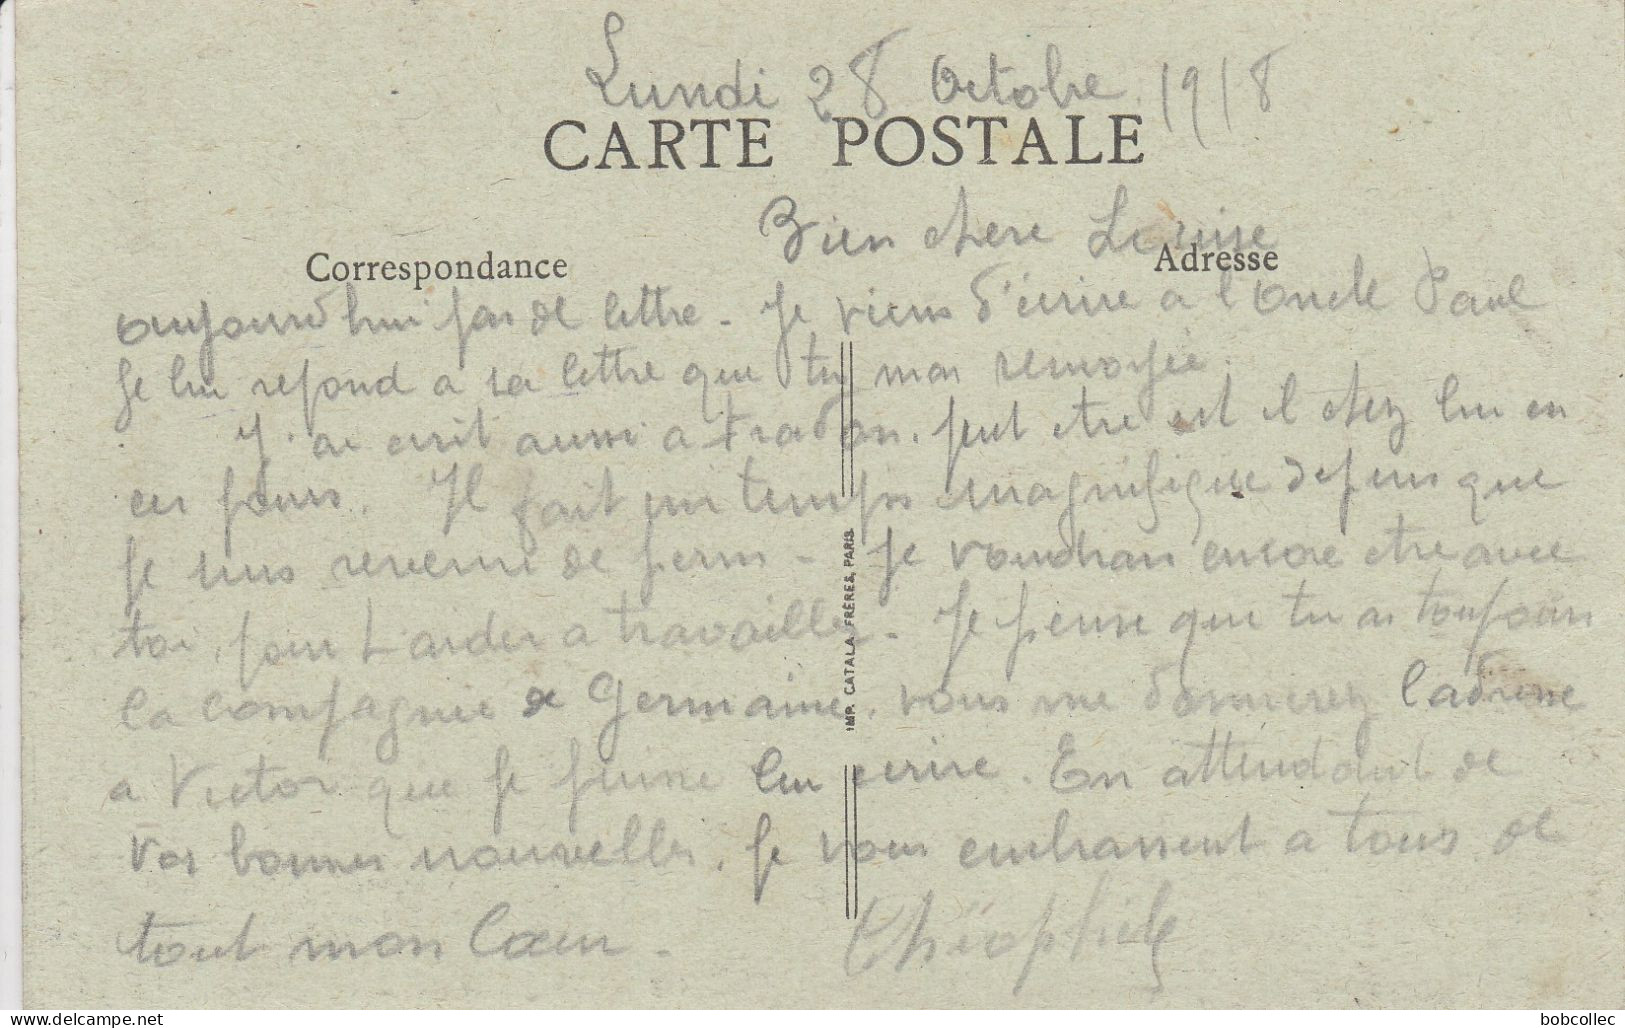 Lundi 28 Octobre 1918
CARTE POSTALE
Bien chere Louise
Correspondance
Adresse
aujourd'hui pas de lettre - Je viens d'écrire a l'Oncle Paul
Je lui repond a sa lettre que tu mas renvoyée.
J'ai ecrit aussi a peut etre est il chez lui en
ces jours. Il fait un temps magnifique depuis que
Je suis revenu de perm - Je voudrais encore etre avec
toi, pour t aider a travailler - Je pense que tu as toujours
la compagnie de Germaine, vous me donnerez l'adresse
a Victor que je puisse lui ecrire. En attendant de
vos bonnes nouvelles, Je vous embrassent a tous de
tout mon Cœur - Théophile
IMP. CATALA FRÈRES, PARIS
bobcollec